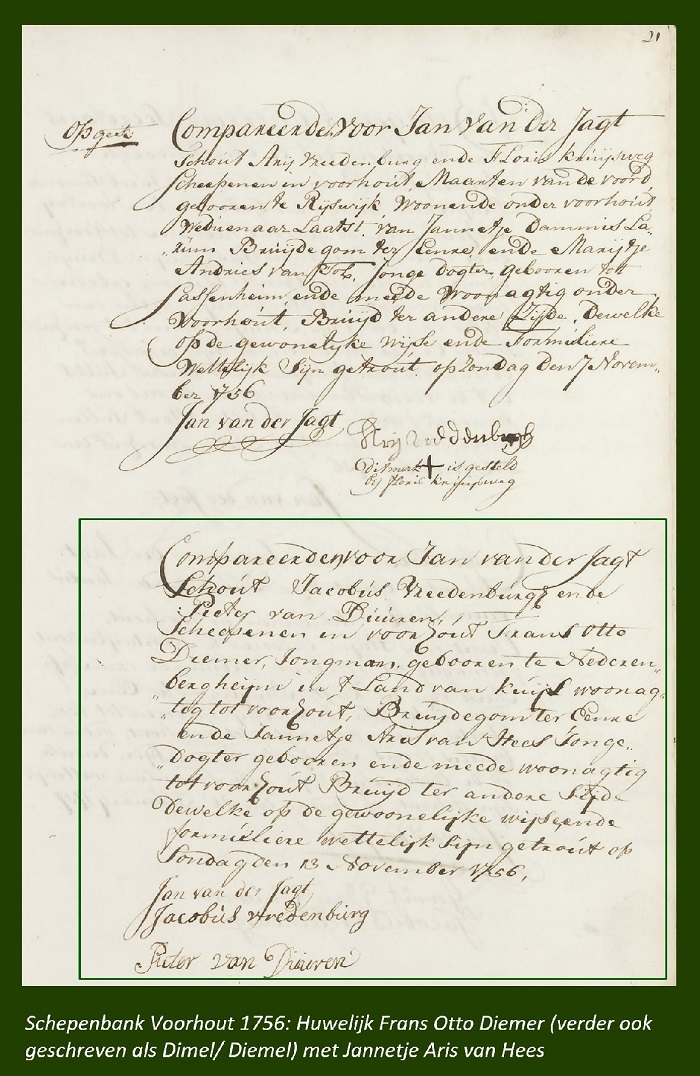 21
Op geeti
Compareerde voor Jan van der Jagt
Schout Arij Vreedenburg ende Floris kruijsweg
Scheepenen in voorhout Maarten van de voord
gebooren te Rijswijk Woonende onder voorhout
Weduenaar Laatst van Jannetje Dammis La
Bruijdegom ter Eenre, ende Marijtje
Andries van Tol, Jonge dogter, gebooren tot
Sassenheim, ende meede Woonagtig onder
Voorhout, Bruijd ter andere Zijde, Dewelke
op de gewonelyke wijse ende Formeliere
Wettelijk Sijn getrout op Zondag den 7 Novem„
ber 1756
Jan van der Jagt
Arij vreddenburgh
Dit merk + is gesteld
bij floris kruijsweg
Compareerden voor Jan van der Jagt
Schout Jacobus Vreedenburg ende
Pieter van Diuuren,
Scheepenen in voorhout Frans Otto
Diemer, Jongman, gebooren te Nederen„
„bergheijm in 't Land van kuijl woonag„
„tig tot voorhout, Bruijdegom ter Eenre
ende Jannetje Aris van Hees Jonge„
„dogter gebooren ende meede woonagtig
tot voorhout Bruijd ter andere Sijde
Dewelke op de gewoonelijke wijse ende
formuliere wettelijk Sijn getrout op
Sondag den 13 November 1756,
Jan van der Jagt
Jacobus vredenburg
Pieter van Diuuren
Schepenbank Voorhout 1756: Huwelijk Frans Otto Diemer (verder ook
geschreven als Dimel/ Diemel) met Jannetje Aris van Hees